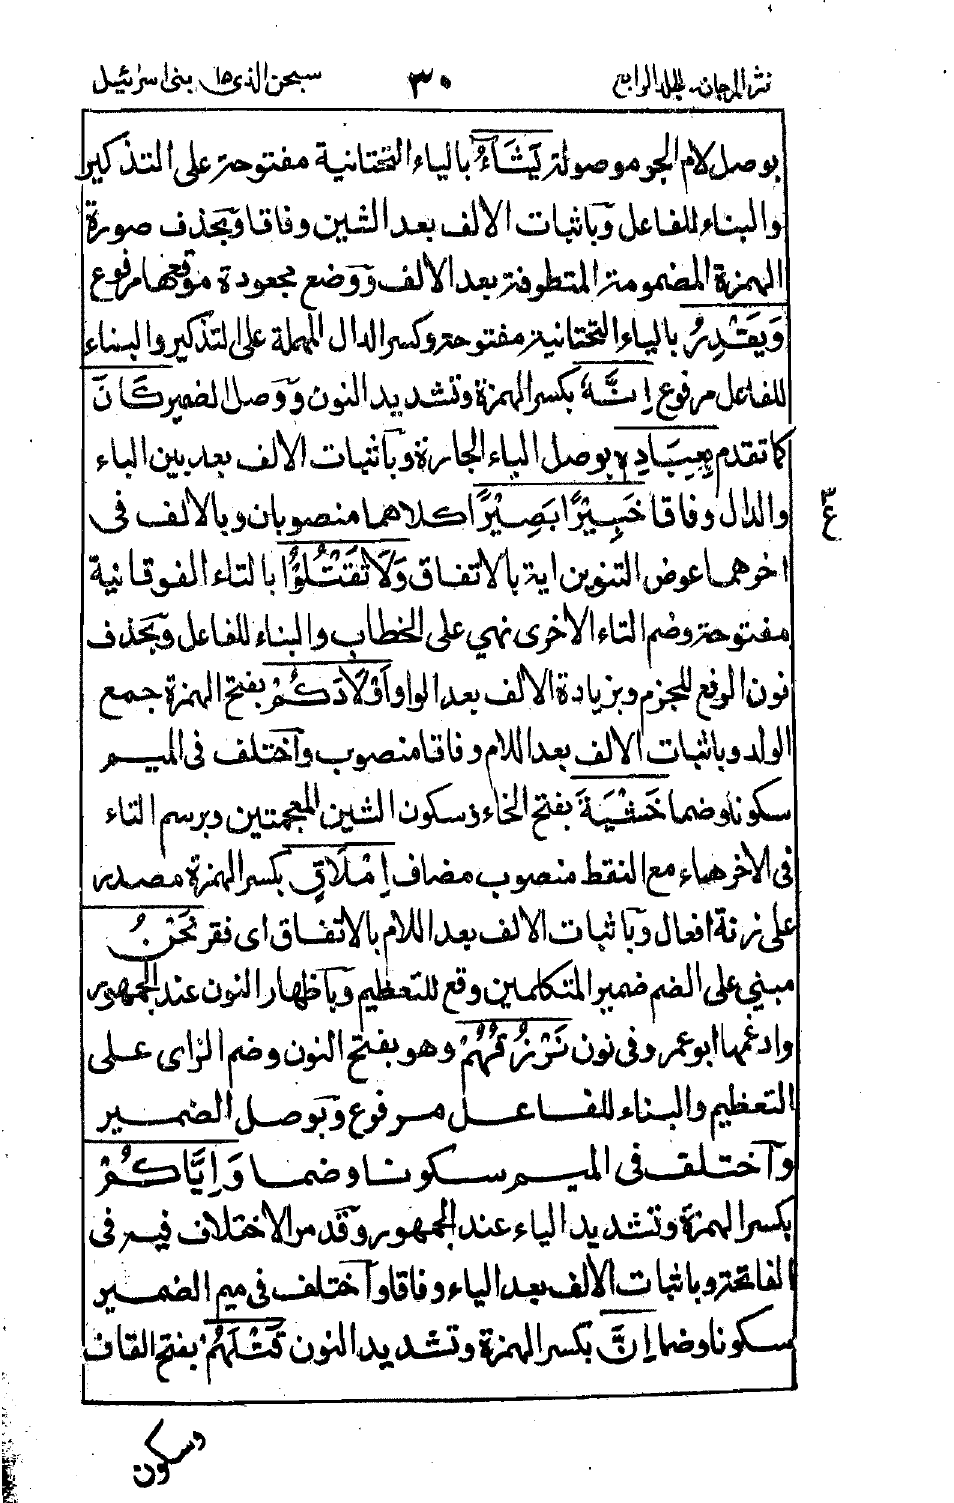 نثر المرجان۔ الجلد الرابع ٣٠ سبحن الذی ١٥ بنی اسرائیل
بوصل لام الجر موصولة يَشَآءُ بالياء التحتانية مفتوحة على التذكير
والبناء للفاعل وباثبات الالف بعد الشين وفاقا وبحذف صورة
الهمزة المضمومة المتطرفة بعد الالف ووضع مجعودة موقعها مرفوع
وَيَقْدِرُ بالياء التحتانية مفتوحة وكسر الدال المهملة على التذكير والبناء
للفاعل مرفوع اِنَّهٗ بكسر الهمزة وتشديد النون ووصل الضمير كَانَ
كما تقدم بِعِبَادِهٖ بوصل الباء الجارة وباثبات الالف بعد بين الباء
والدال وفاقا خَبِيْرًا بَصِيْرًا كلاهما منصوبان وبالالف فى
اخرهما عوض التنوين اية بالاتفاق وَلَا تَقْتُلُوْٓا بالتاء الفوقانية
مفتوحة وضم التاء الاخرى نهي على الخطاب والبناء للفاعل وبحذف
نون الرفع للجزم وبزيادة الالف بعد الواو اَوْلَادَكُمْ بفتح الهمزة جمع
الولد وباثبات الالف بعد اللام وفاقا منصوب واختلف فى الميم
سكونا وضما خَشْيَةَ بفتح الخاء وسكون الشين المعجمتين وبرسم التاء
فى الاخر هاء مع النقط منصوب مضاف اِمْلَاقٍ بكسر الهمزة مصدر
على زنة افعال وباثبات الالف بعد اللام بالاتفاق اى فقر نَحْنُ
مبني على الضم ضمير المتكلمين وقع للتعظيم وباظهار النون عند الجمهور
وادغمها ابو عمرو فى نون نَرْزُقُهُمْ وهو بفتح النون وضم الزاى على
التعظيم والبناء للفاعل مرفوع وبوصل الضمير
واختلف فى الميم سكونا وضما وَاِيَّاكُمْ
بكسر الهمزة وتشديد الياء عند الجمهور وقد مر الاختلاف فيه فى
الفاتحة وباثبات الالف بعد الياء وفاقا واختلف فى ميم الضمير
سكونا وضما اِنَّ بكسر الهمزة وتشديد النون قَتْلَهُمْ بفتح القاف
وسكون